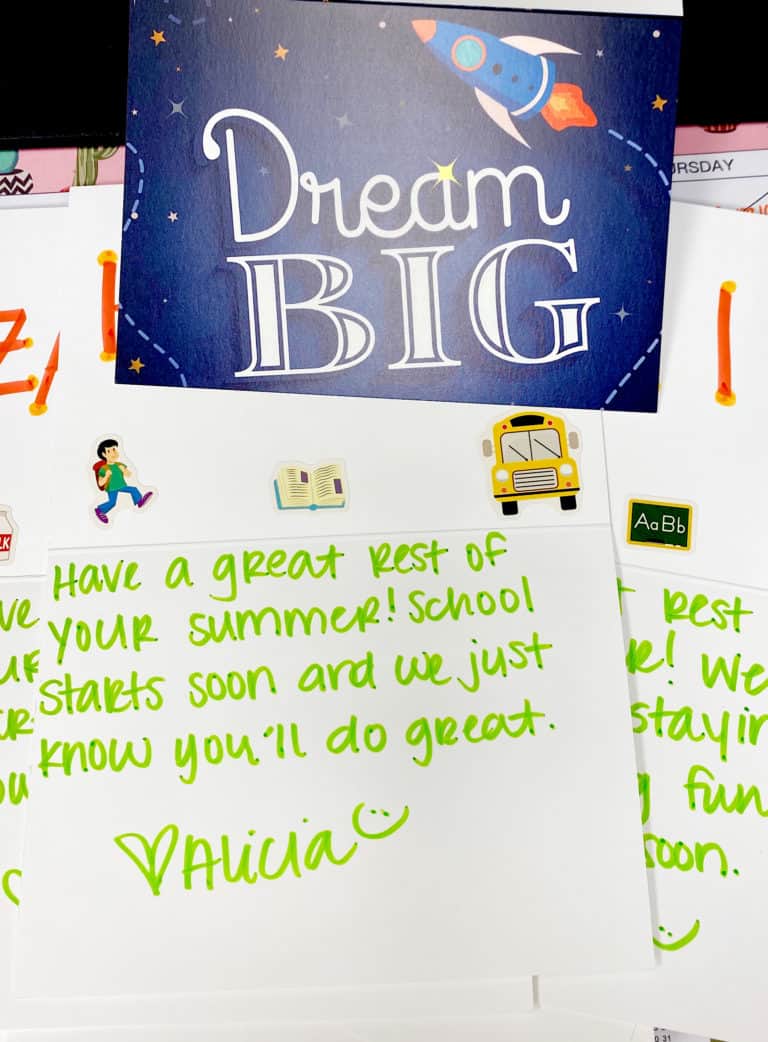 Dream
BIG
RSDAY
AaBb
Have a great rest of
your summer! School
starts soon and we just
know you'll do great.
Alicia
rest
! We
stayin
fun
soon.